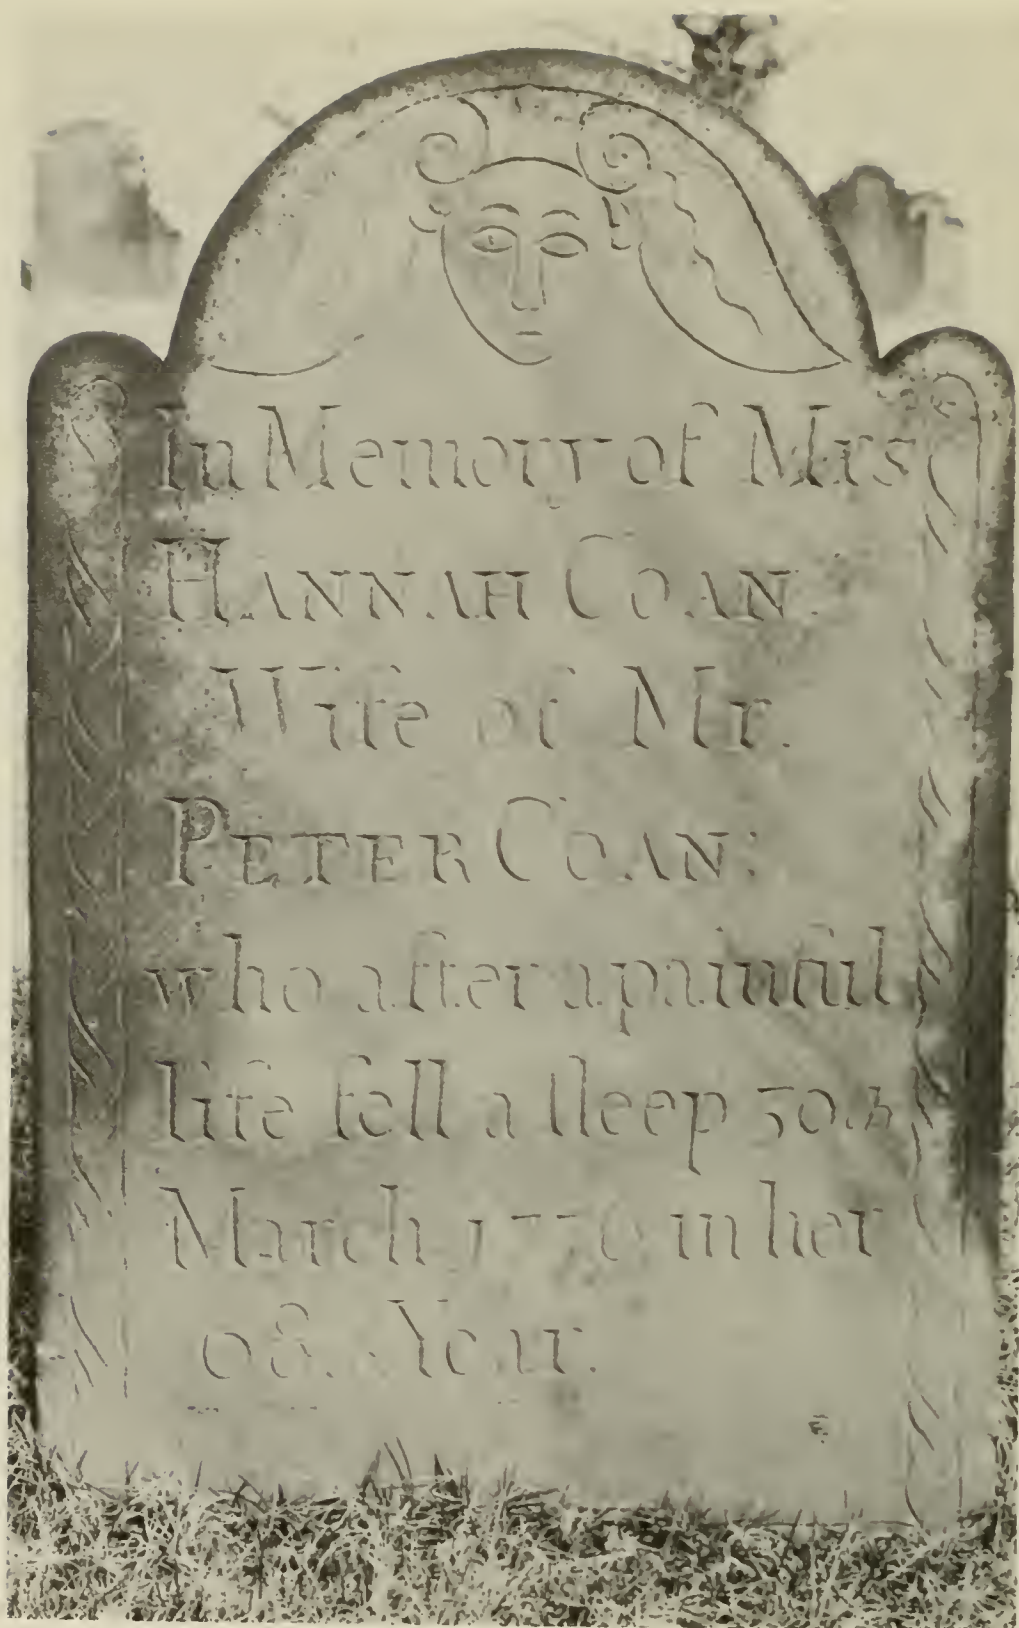 In Memory of Mrs
HANNAH COAN.
Wife of Mr.
PETER COAN:
who after a painful
life fell a sleep
March in her
Year.